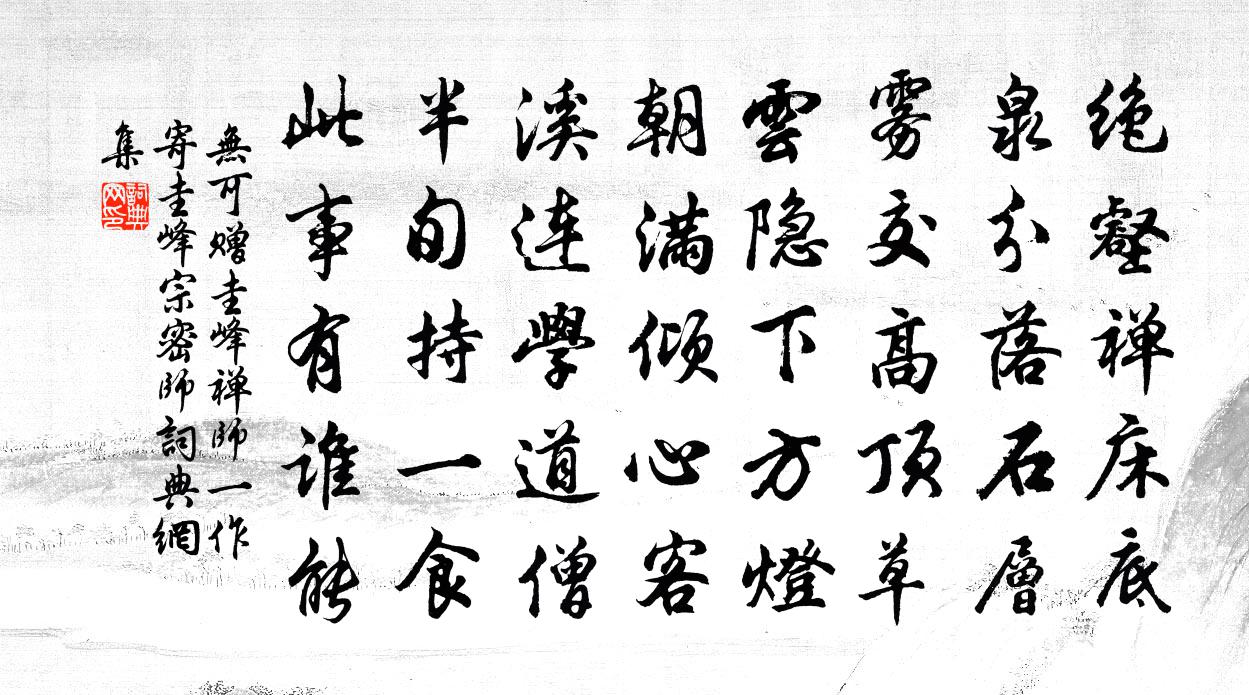 绝壑禅床底
泉分落石層
雾交高顶草
雲隐下方燈
朝满倾心客
溪连學道僧
半旬持一食
此事有谁能
無可赠圭峰禅师一作
寄圭峰宗密师詞典網
集
詞典网印